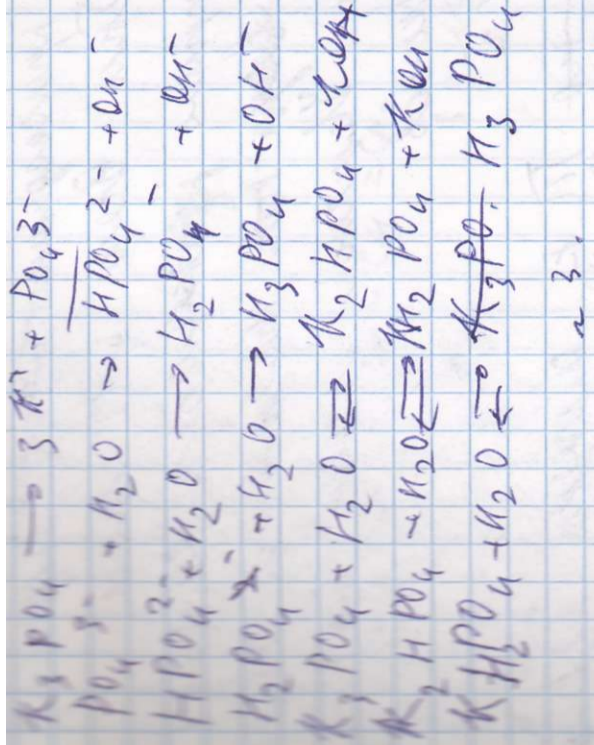 K₃PO₄ → 3K⁺ + PO₄³⁻
PO₄³⁻ + H₂O → HPO₄²⁻ + OH⁻
HPO₄²⁻ + H₂O → H₂PO₄⁻ + OH⁻
H₂PO₄⁻ + H₂O → H₃PO₄ + OH⁻
K₃PO₄ + H₂O ⇄ K₂HPO₄ + KOH
K₂HPO₄ + H₂O ⇄ KH₂PO₄ + KOH
KH₂PO₄ + H₂O ⇄ H₃PO₄
3.